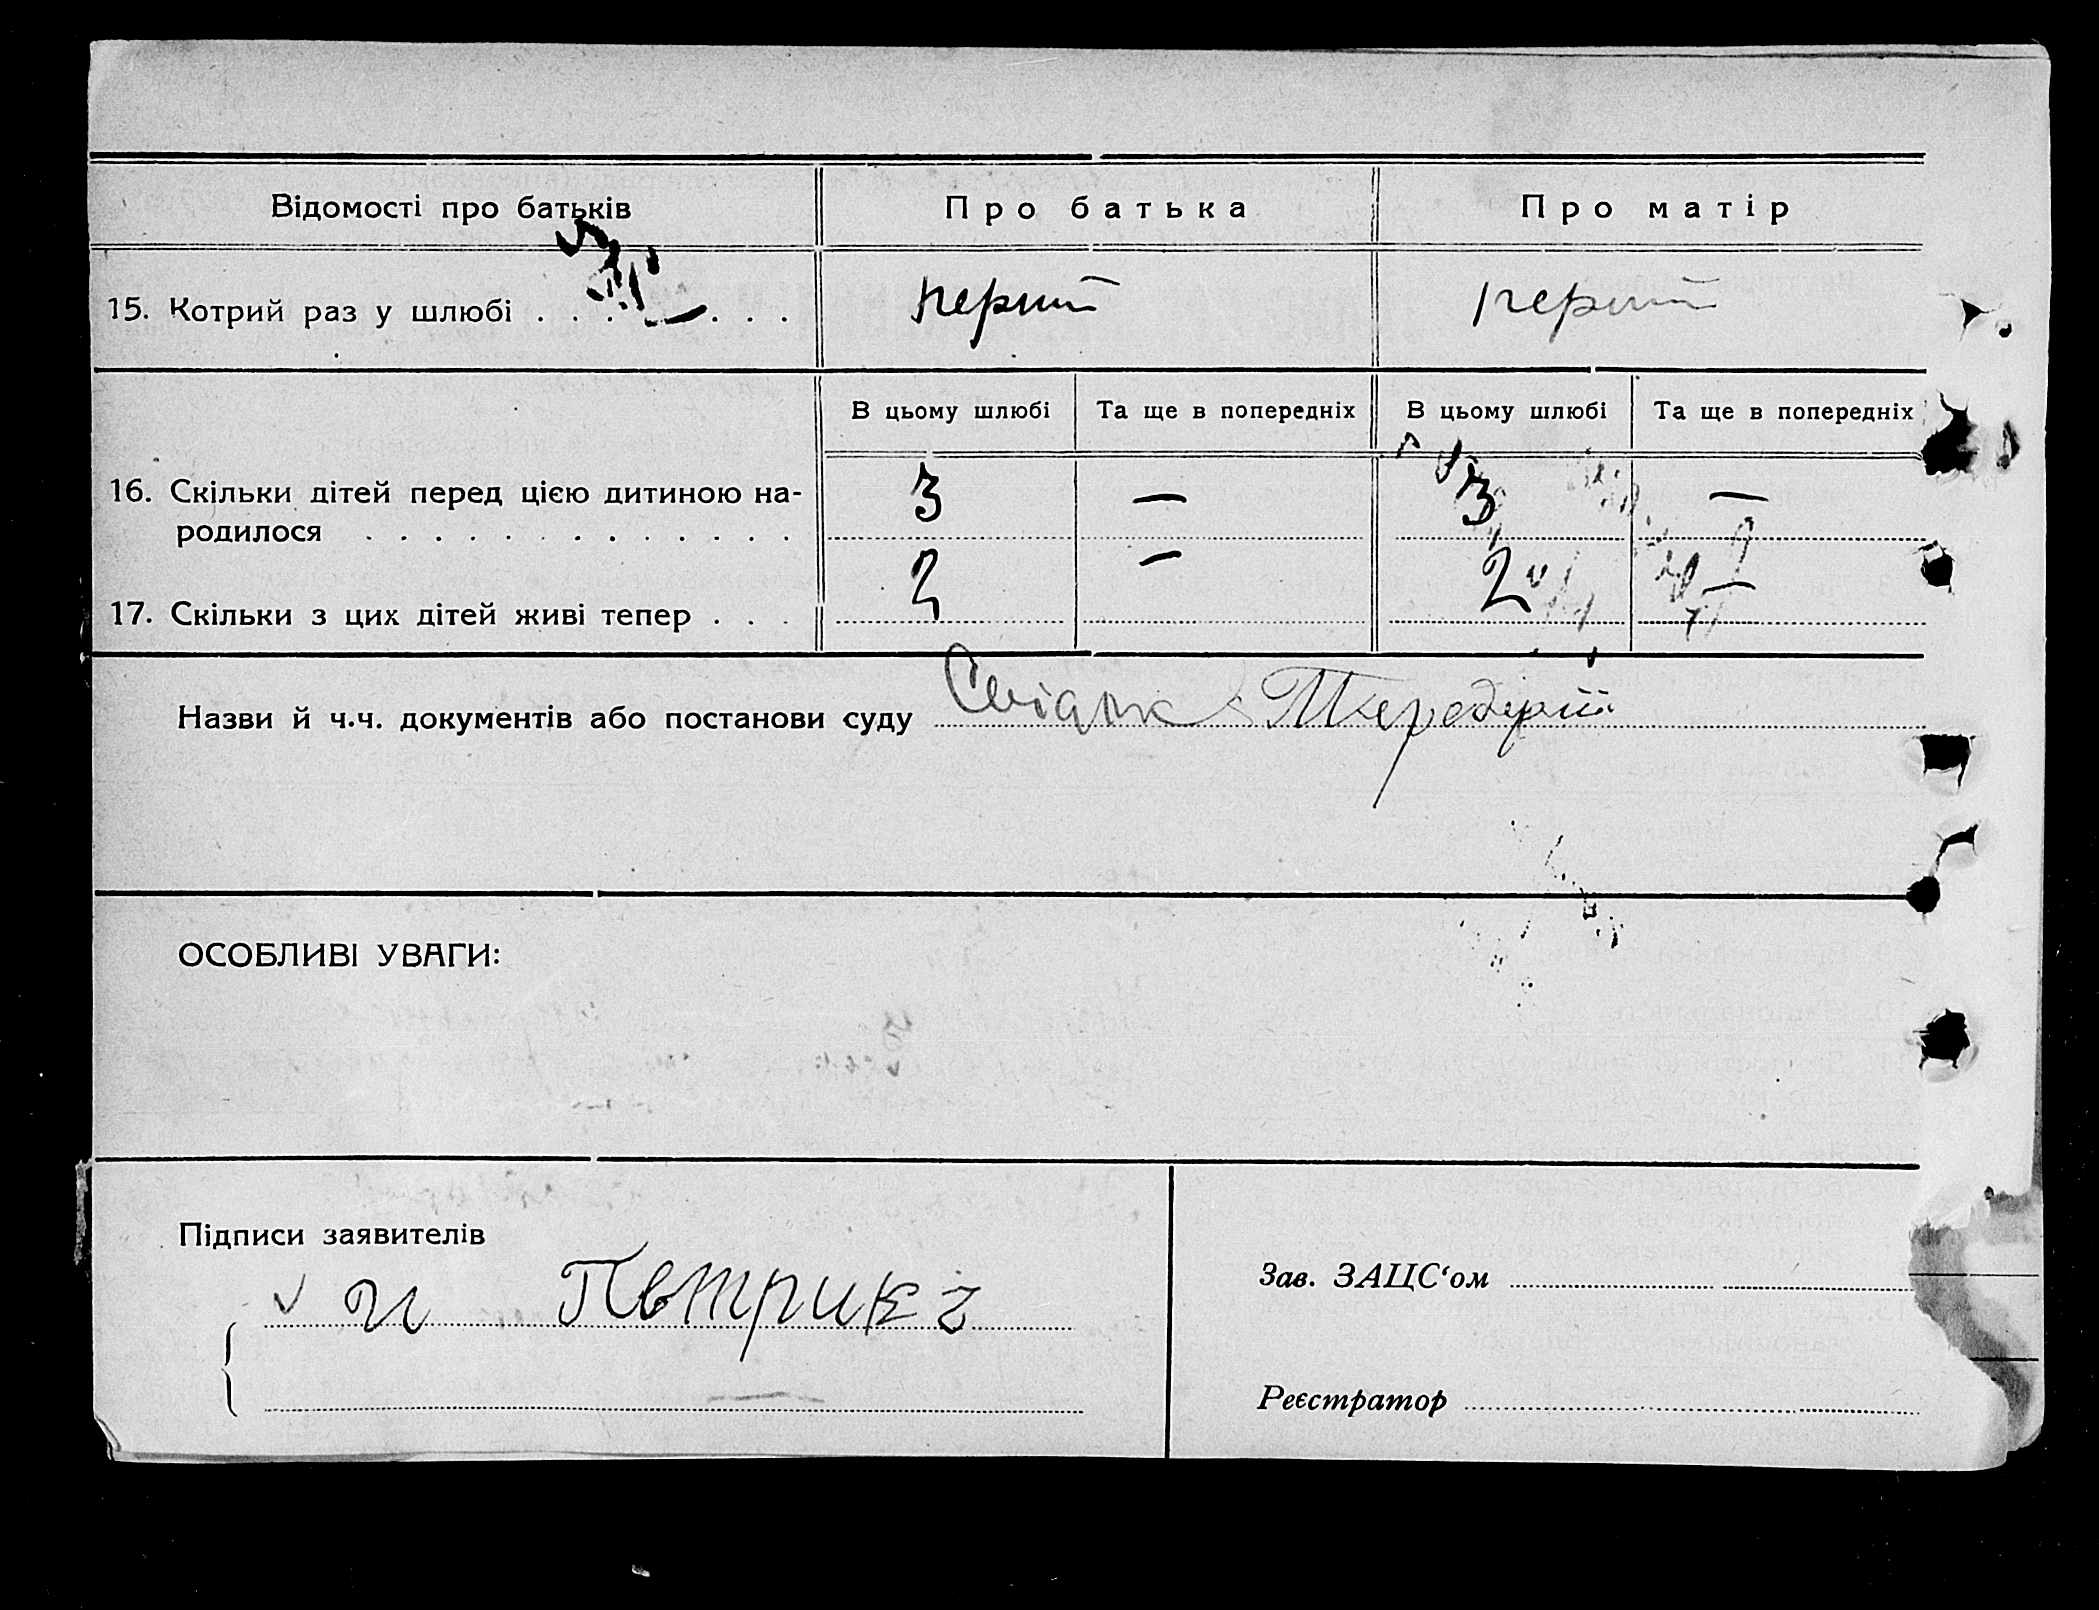 Відомості про батьків Про батька Про матір
15. Котрий раз у шлюбі . . . . . . . перший перший
В цьому шлюбі Та ще в попередніх В цьому шлюбі Та ще в попередніх
16. Скільки дітей перед цією дитиною на-
родилося . . . . . . . . . . . . . 3 — 3 —
17. Скільки з цих дітей живі тепер . . . 2 — 2 —
Назви й ч.ч. документів або постанови суду
ОСОБЛИВІ УВАГИ:
Підписи заявителів
Зав. ЗАЦС‘ом
Реєстратор